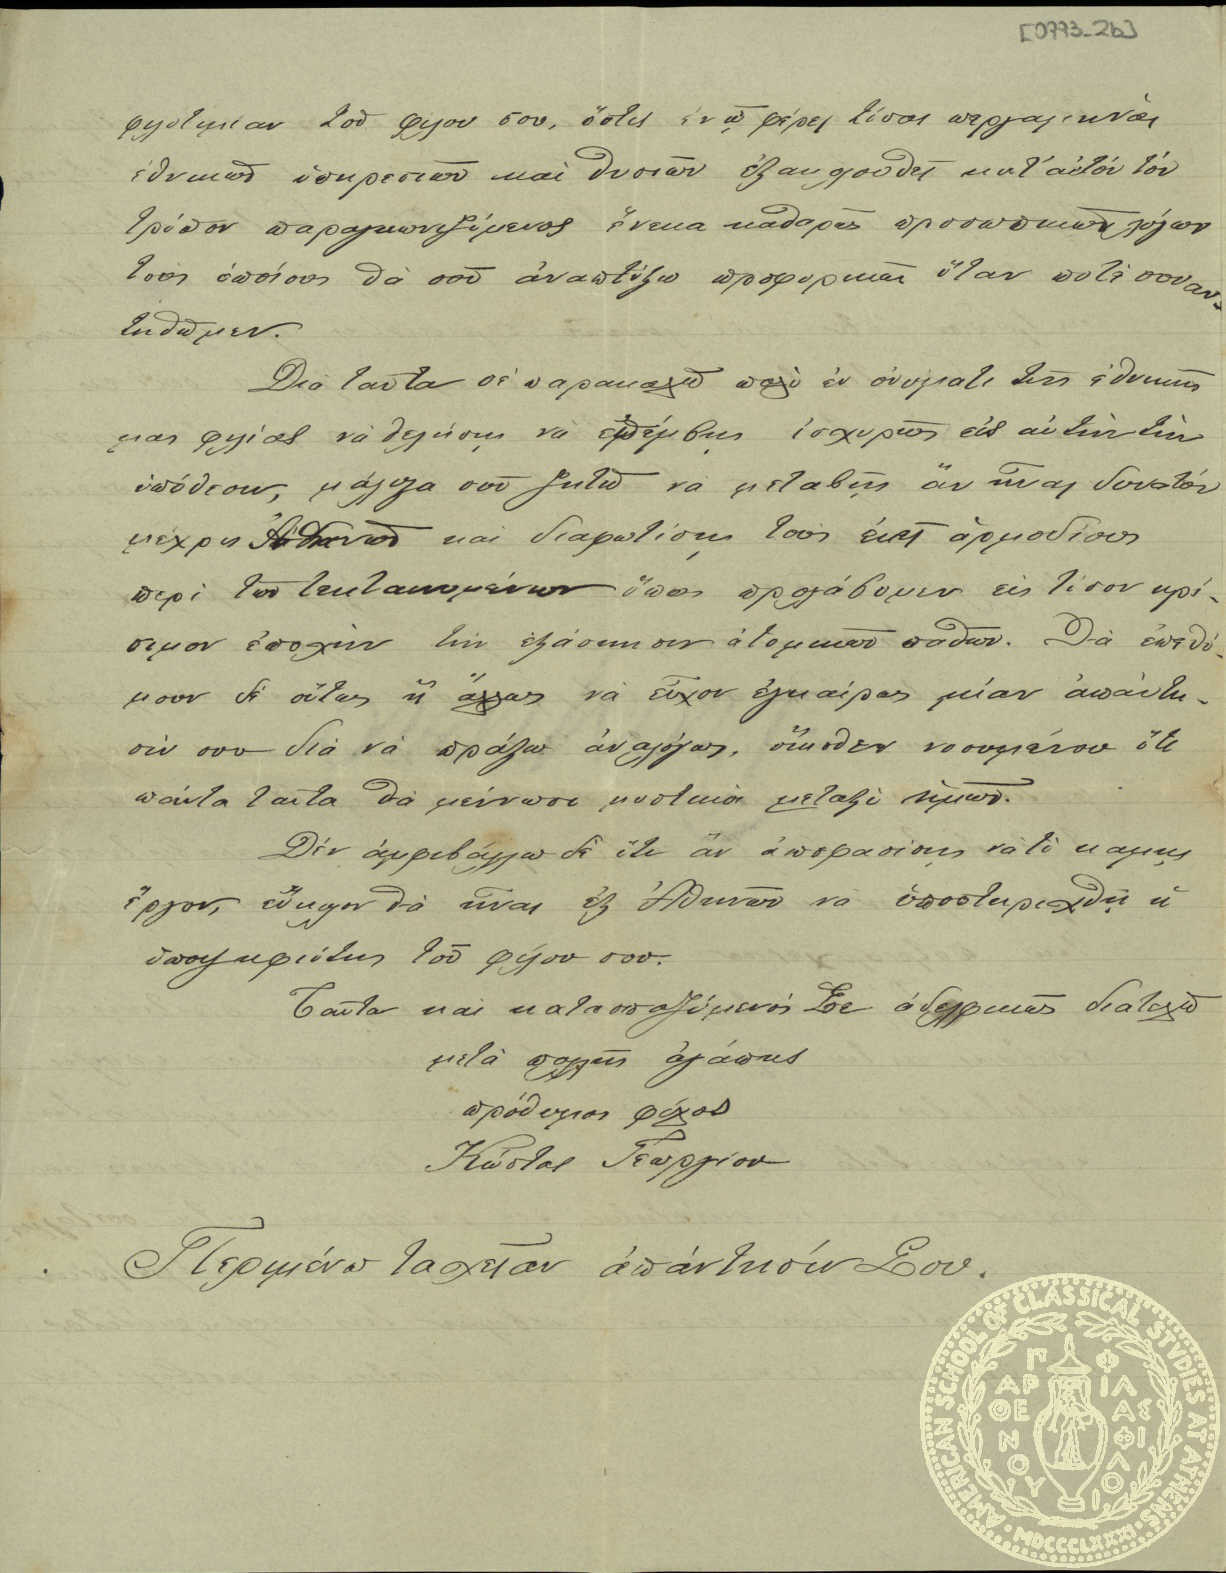 [0773_2b]
φιλοτιμίαν τοῦ φίλου σου, ὅστις ἐν ᾧ φέρει τόσας περγαμηνὰς
ἐθνικῶν ὑπηρεσιῶν καὶ θυσιῶν ἐξακολουθεῖ κατ' αὐτὸν τὸν
τρόπον παραγκωνιζόμενος ἕνεκα καθαρῶς προσωπικῶν λόγων
τοὺς ὁποίους θὰ σοῦ ἀναπτύξω προφορικῶς ὅταν ποτὲ συναν-
τηθῶμεν.
Διὰ ταῦτα σὲ παρακαλῶ πολὺ ἐν ὀνόματι τῆς ἐθνικῆς
μας φιλίας νὰ θελήσῃς νὰ ἐπέμβῃς ἰσχυρῶς εἰς αὐτὴν τὴν
ὑπόθεσιν, μάλιστα σοῦ ζητῶ νὰ μεταβῇς ἂν ἦναι δυνατὸν
μέχρις Ἀθηνῶν καὶ διαφωτίσῃς τοὺς ἐκεῖ ἁρμοδίους
περὶ τῶν τεκταινομένων ὅπως προλάβωμεν εἰς τόσον κρί-
σιμον ἐποχὴν τὴν ἐξάσκησιν ἀτομικῶν παθῶν. Θὰ ἐπεθύ-
μουν δὲ οὕτως ἢ ἄλλως νὰ εἶχον ἐγκαίρως μίαν ἀπάντη-
σίν σου διὰ νὰ πράξω ἀναλόγως, οἴκοθεν νοουμένου ὅτι
πάντα ταῦτα θὰ μείνωσι μυστικὰ μεταξὺ ἡμῶν.
Δὲν ἀμφιβάλλω δὲ ὅτι ἂν ἀποφασίσῃς νὰ τὸ κάμῃς
ἔργον, εὔκολον θὰ ἦναι ἐξ Ἀθηνῶν νὰ ὑποστηριχθῇ ἡ
ὑποψηφιότης τοῦ φίλου σου.
Ταῦτα καὶ κατασπαζόμενός Σε ἀδελφικῶς διατελῶ
μετὰ πολλῆς ἀγάπης
πρόθυμος φίλος
Κώστας Γεωργίου
Περιμένω ταχεῖαν ἀπάντησίν Σου.
AMERICAN SCHOOL OF CLASSICAL STUDIES AT ATHENS
ΠΑΡΘΕΝΟΥ ΦΙΛΑΣ ΦΙΛΟΙ
MDCCCLXXXI